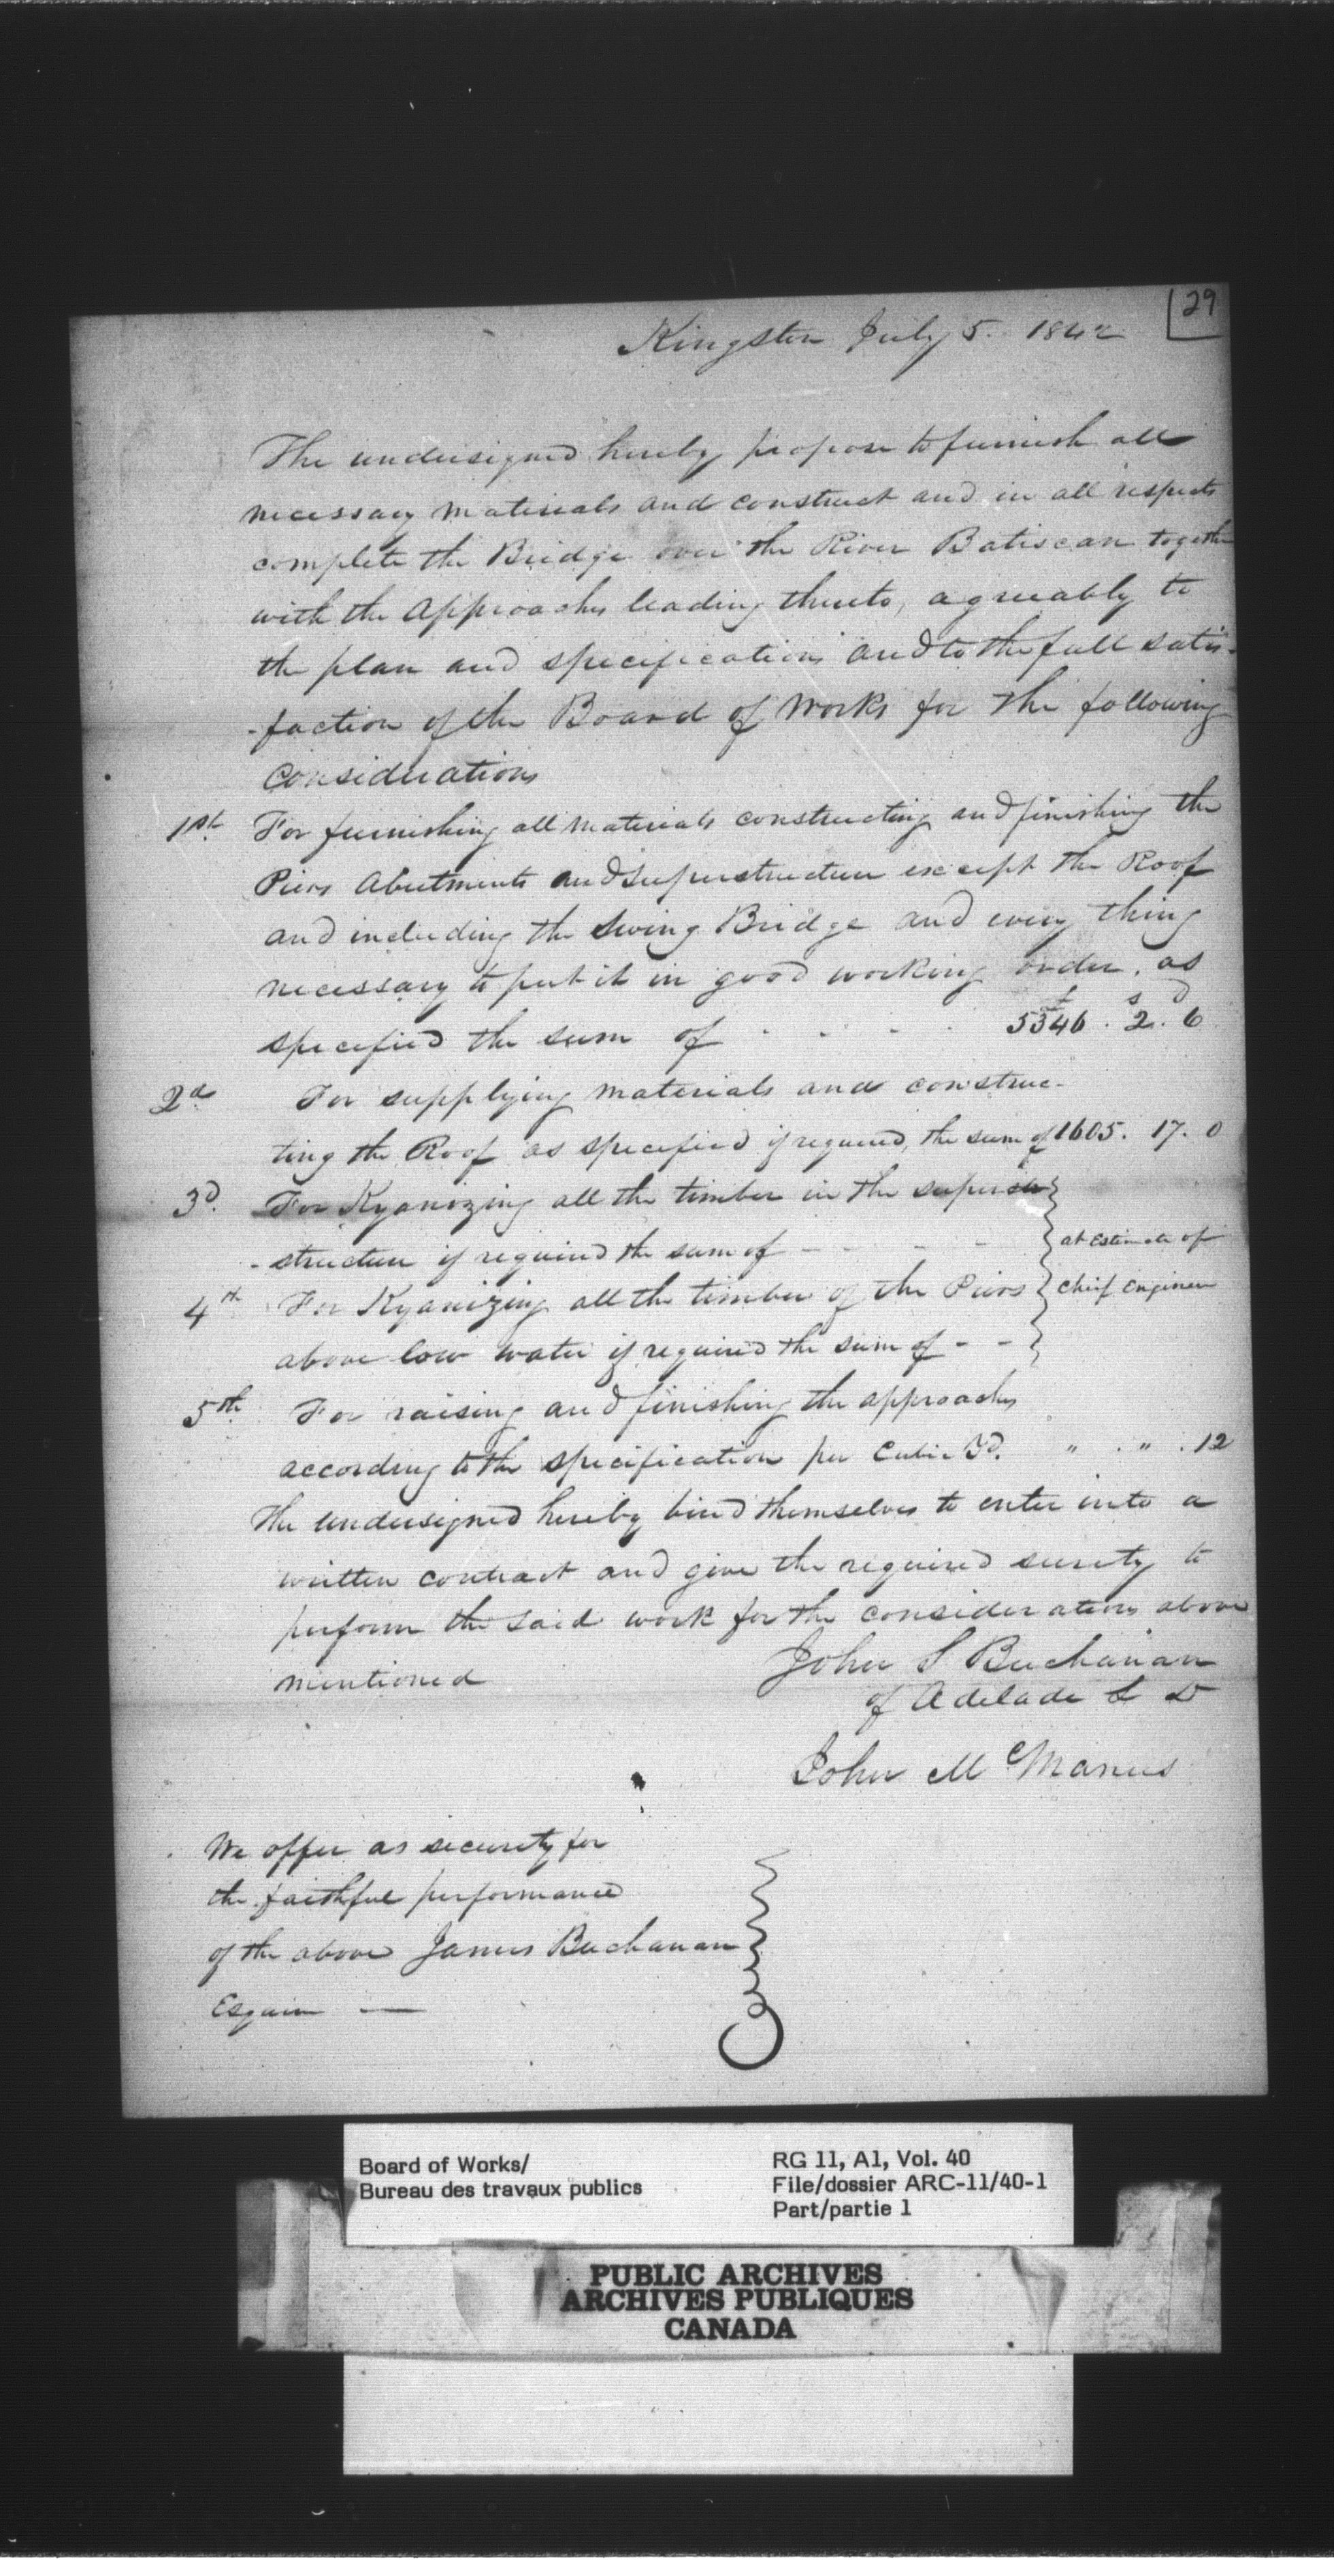 29
Kingston July 5. 1842
The undersigned hereby propose to furnish all
necessary materials and construct and in all respects
complete the Bridge over the River Batiscan together
with the approaches leading thereto, agreeably to
the plan and specifications and to the full satis-
-faction of the Board of Works for the following
Considerations
1st. For furnishing all materials constructing and finishing the
Piers Abutments and Superstructure except the Roof
and including the Swing Bridge and every thing
necessary to put it in good working order. as
£ s d
specified the sum of - - - - 5346. 2. 6
2d. For supplying materials and construc-
ting the Roof as specified if required, the sum of 1605. 17. 0
3d. For Kyanizing all the timber in the super
-structure if required the sum of - - - - at Estimate of
4th For Kyanizing all the timber of the Piers Chief Engineer
above low water if required the sum of - -
5th. For raising and finishing the approaches
according to the specification per Cubic Yd. " . " . 12
The undersigned hereby bind themselves to enter into a
written contract and give the required surety to
perform the said work for the considerations above
mentioned
John S Buchanan
of Adelade L D
John McManus
We offer as security for
the faithful performance
of the above James Buchanan
Esquire —
Board of Works/
Bureau des travaux publics
RG 11, A1, Vol. 40
File/dossier ARC-11/40-1
Part/partie 1
PUBLIC ARCHIVES
ARCHIVES PUBLIQUES
CANADA